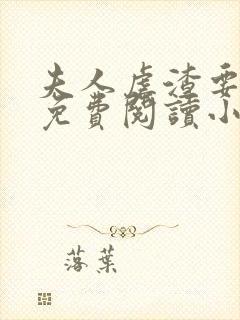 夫人虐渣要
免費閱讀小
落葉